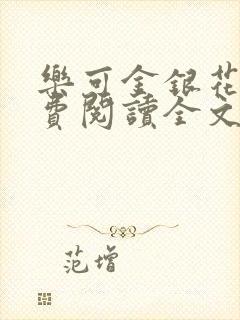 樂可金銀花
費閱讀全文
范增